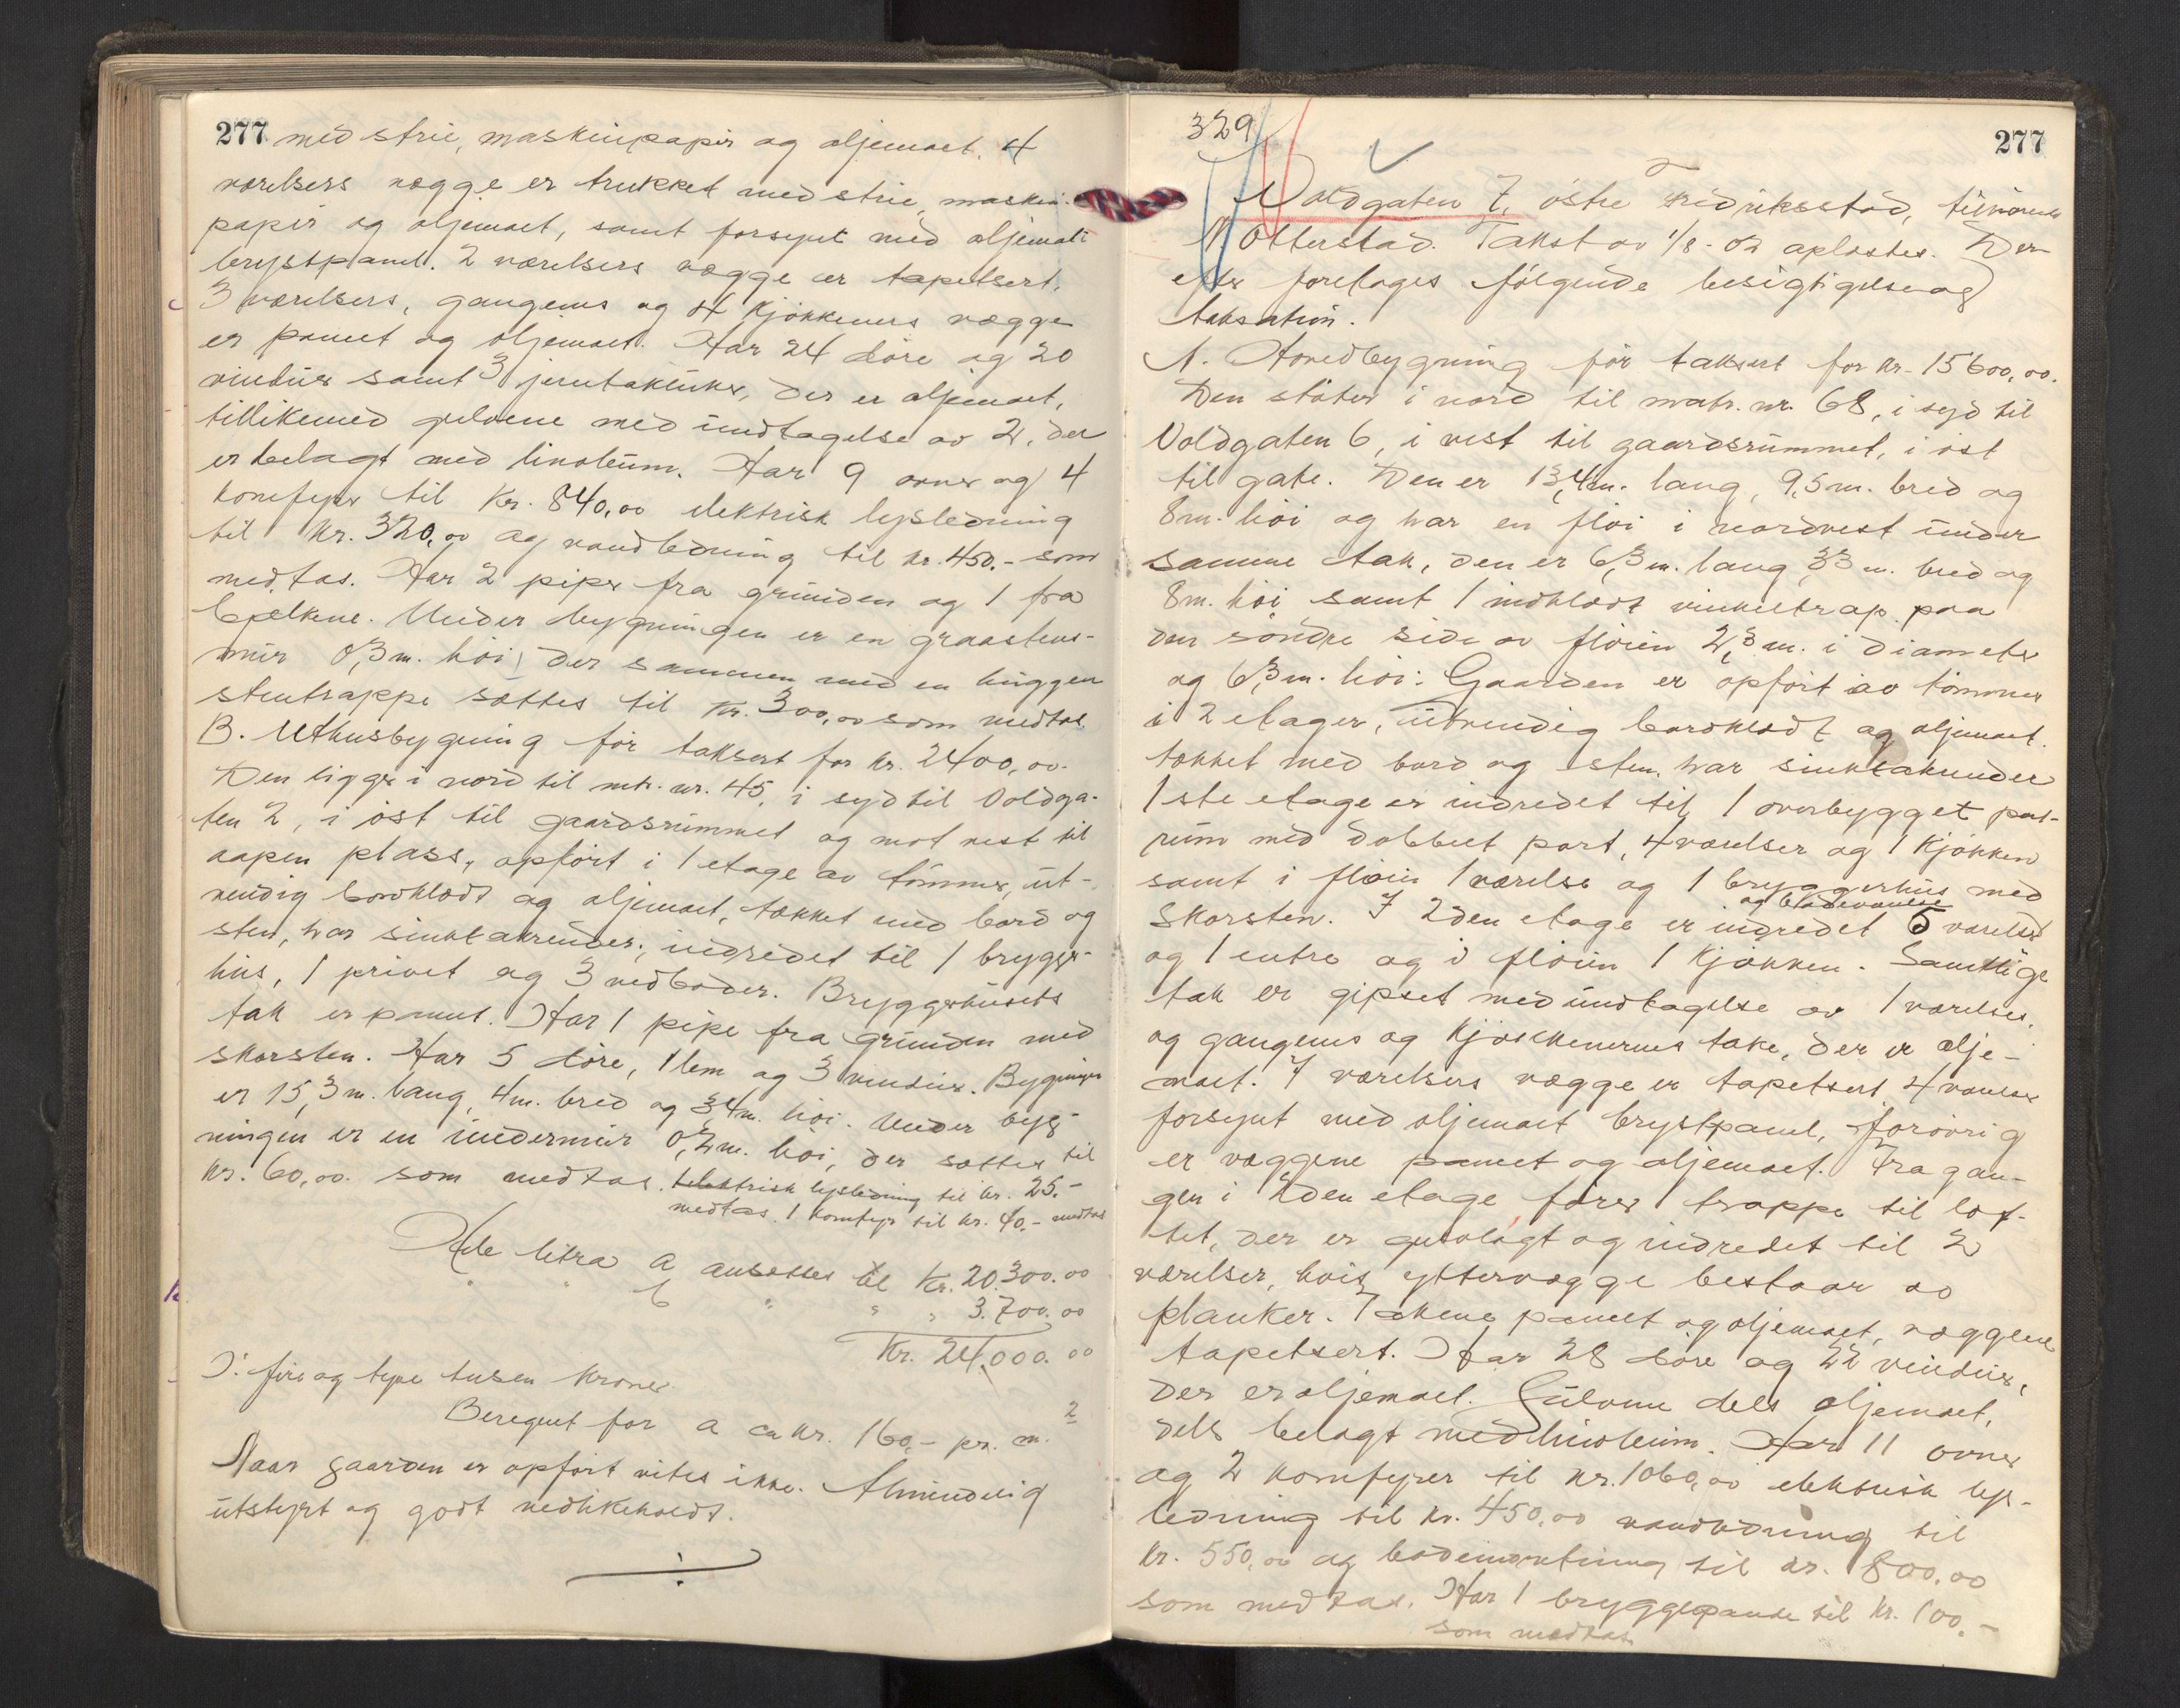 277 med strie, maskinpapir og oljemalt. 4
værelsers vægge er trukket med strie, maskin-
papir og oljemalt, samt forsynt med oljemalt
brystpanel. 2 værelsers vægge er tapetsert.
3 værelsers, gangens og 4 kjøkkeners vægge
er panelt og oljemalt. Har 24 døre og 20
vinduer samt 3 jerntakluker, der er oljemalt,
tillikemed gulvene med undtagelse av 2, der
er belagt med linoleum. Har 9 ovner og 4
komfyrer til Kr. 840,00 elektrisk lysledning
til kr. 320,00 og vandledning til kr. 450.- som
medtas. Har 2 piper fra grunden og 1 fra
bjelkene. Under bygningen er en graastens-
mur 0,3 m. høi, der sammen med en huggen
stentrappe sættes til Kr. 300,00 som medtas.
B. Uthusbygning før taksert for kr. 2400,00.
Den ligger i nord til mtr. nr. 45, i syd til Voldga-
ten 2, i øst til gaardsrummet og mot vest til
aapen plass, opført i 1 etage av tømmer, ut-
vendig bordklædt og oljemalt, tækket med bord og
sten, har sinktakrender, indredet til 1 brygger-
hus, 1 privet og 3 vedboder. Bryggerhusets
tak er panelt. Har 1 pipe fra grunden med
skorsten. Har 5 døre, 1 lem og 3 vinduer. Bygningen
er 15,3 m. lang, 4 m. bred og 3,4 m. høi. Under byg-
ningen er en undermur 0,2 m. høi, der sættes til
kr. 60,00. som medtas. elektrisk lysledning til kr. 25.-
medtas. 1 komfyr til kr. 40.- medtas
Ade litra a ansættes til Kr. 20.300.00
" " b " " " 3.700.00
Kr. 24.000.00
D: fire og tyve tusen kroner.
Beregnet for a ca kr. 160,- pr. m.2
Naar gaarden er opført vites ikke. Almindelig
utstyrt og godt vedlikeholdt.
329
277
Voldgaten 7, østre Fredriksstad, tilhørende
N Otterstad. Takst av 1/8-02 oplæstes. Der-
efter foretages følgende besigtigelse og
taksation.
A. Hovedbygning før taksert for kr. 15600,00.
Den støter i nord til matr. nr. 68, i syd til
Voldgaten 6, i vest til gaardsrummet, i øst
til gate. Den er 13,4 m. lang, 9,5 m. bred og
8 m. høi og har en fløi i nordvest under
samme tak, den er 6,3 m. lang, 3,3 m. bred og
8 m. høi samt 1 indklædt vinkeltrap. paa
den søndre side av fløien 2,3 m. i diameter
og 6,3 m. høi. Gaarden er opført av tømmer
i 2 etager, utvendig bordklædt og oljemalt.
tækket med bord og sten, har sinktakrender
1ste etage er indredet til 1 overbygget port-
rum med dobbelt port, 4 værelser og 1 kjøkken
samt i fløien 1 værelse og 1 bryggerhus med
og badeværelse
Skorsten. I 2den etage er indredet 5 værelser
og 1 entre og i fløien 1 kjøkken. Samtlige
tak er gipset med undtagelse av 1 værelses,
og gangens og kjøkkenernes take, der er olje-
malt. 7 værelsers vægge er tapetsert. 4 værelser
forsynt med oljemalt brystpanel, forøvrig
er væggene panelt og oljemalt. Fra gan-
gen i 2den etage fører trappe til lof-
tet, der er gulvlagt og indredet til 2
værelser, hvis yttervægge bestaar av
planker. Takene panelt og oljemalt, væggene
tapetsert. Har 28 døre og 22 vinduer,
der er oljemalt. Gulvene dels oljemalt,
dels belagt med linoleum. Har 11 ovner
og 2 komfyrer til kr. 1060,00 elektrisk lys-
ledning til kr. 450,00 vandledning til
kr. 550,00 og badeinnretning til kr. 800,00
som medtas. Har 1 bryggepande til kr. 100.-
som medtas